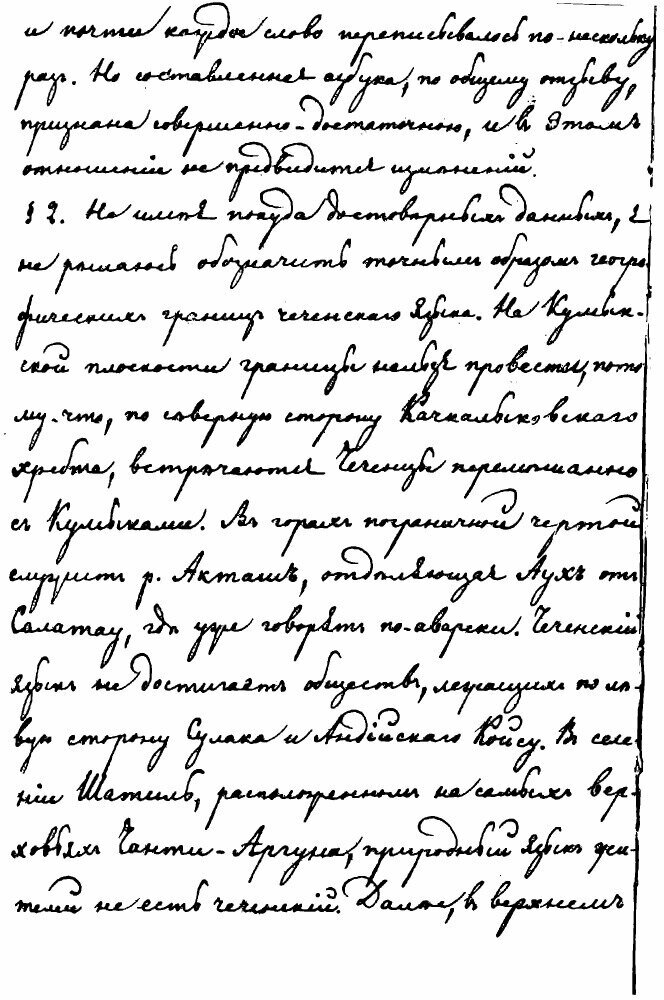 и почти каждое слово переписывалось по-нескольку
разъ. Но составленная азбука, по общему отзыву,
признана совершенно-достаточною, и въ этомъ
отношеніи не предвидится измѣненій.
§ 2. Не имѣя покуда достовѣрныхъ данныхъ, я
не рѣшаюсь обозначить точнымъ образомъ геогра-
фическихъ границъ чеченскаго языка. На Кумык-
ской плоскости границы нельзя провести, пото
му-что, по сѣверную сторону Качкалыковскаго
хребта, встрѣчаются Чеченцы перемѣшанно
съ Кумыками. Въ горахъ пограничной чертой
служитъ р. Акташъ, отдѣляющая Аухъ отъ
Салатау, гдѣ уже говорятъ по-аварски. Чеченскій
языкъ не достигаетъ обществъ, лежащихъ по лѣ-
вую сторону Сулака и Андійскаго Койсу. Въ селе-
ніи Шатиль, расположенномъ на самыхъ вер-
ховьяхъ Чанти-Аргуна, природный языкъ жи-
телей не есть чеченскій. Далѣе, въ верхнемъ